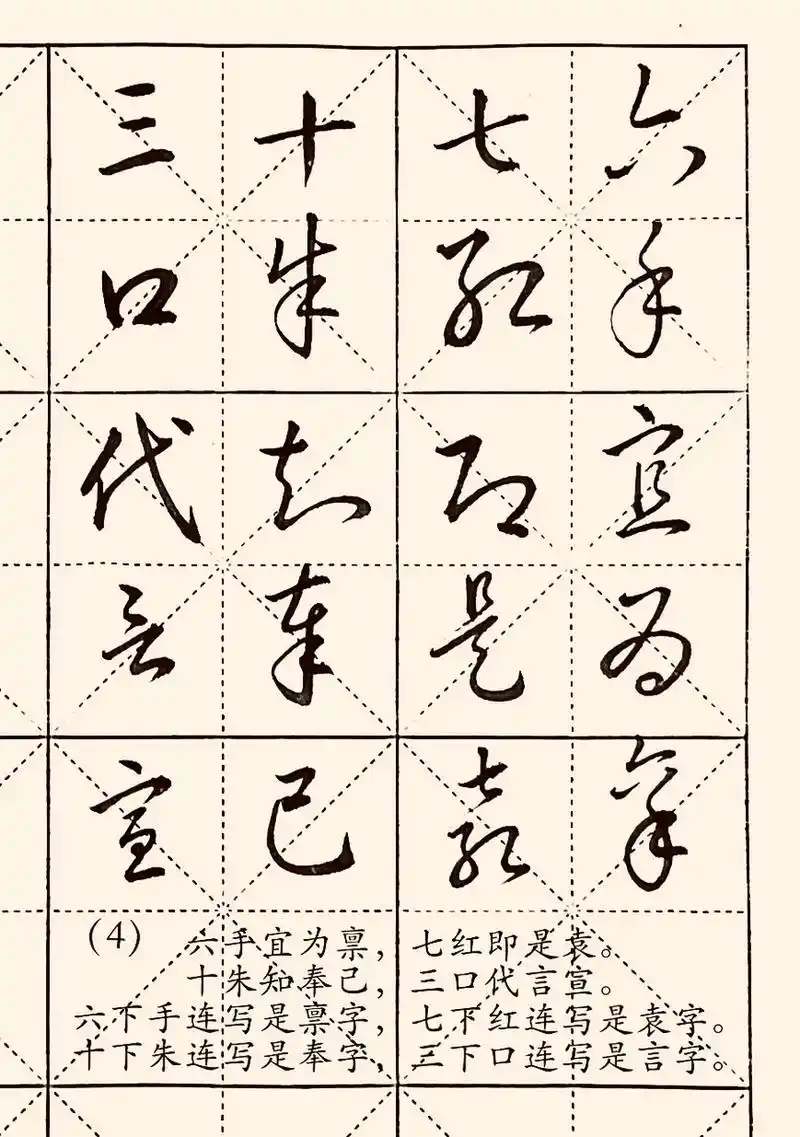 六手宜为禀
七红即是袁
十朱知奉已
三口代言宣
(4) 六手宜为禀，七红即是袁。
十朱知奉己，三口代言宣。
六下手连写是禀字，七下红连写是袁字。
十下朱连写是奉字，三下口连写是言字。